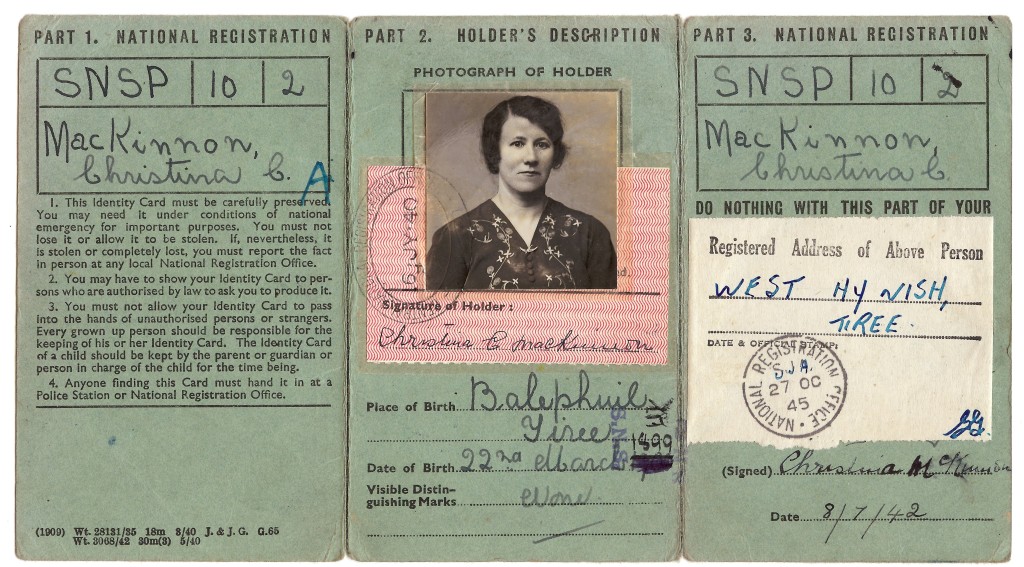 PART 1. NATIONAL REGISTRATION
SNSP 10 2
MacKinnon,
Christina C.
A
1. This Identity Card must be carefully preserved.
You may need it under conditions of national
emergency for important purposes. You must not
lose it or allow it to be stolen. If, nevertheless, it
is stolen or completely lost, you must report the fact
in person at any local National Registration Office.
2. You may have to show your Identity Card to per-
sons who are authorised by law to ask you to produce it.
3. You must not allow your Identity Card to pass
into the hands of unauthorised persons or strangers.
Every grown up person should be responsible for the
keeping of his or her Identity Card. The Identity Card
of a child should be kept by the parent or guardian or
person in charge of the child for the time being.
4. Anyone finding this Card must hand it in at a
Police Station or National Registration Office.
(1909) Wt. 28131/35 18m 3/40 J. & J. G. G.65
Wt. 3068/42 30m(3) 5/40
PART 2. HOLDER'S DESCRIPTION
PHOTOGRAPH OF HOLDER
16 JY 40
Signature of Holder:
Christina C MacKinnon
Place of Birth Balephuil
Tiree
Date of Birth 22nd March 1899
Visible Distin-
guishing Marks None
PART 3. NATIONAL REGISTRATION
SNSP 10 2
MacKinnon,
Christina C.
DO NOTHING WITH THIS PART OF YOUR
Registered Address of Above Person
WEST HYNISH,
TIREE.
DATE & OFFICIAL STAMP:
NATIONAL REGISTRATION OFFICE
27 OC
45
(Signed) Christina McKinnon
Date 8/7/42